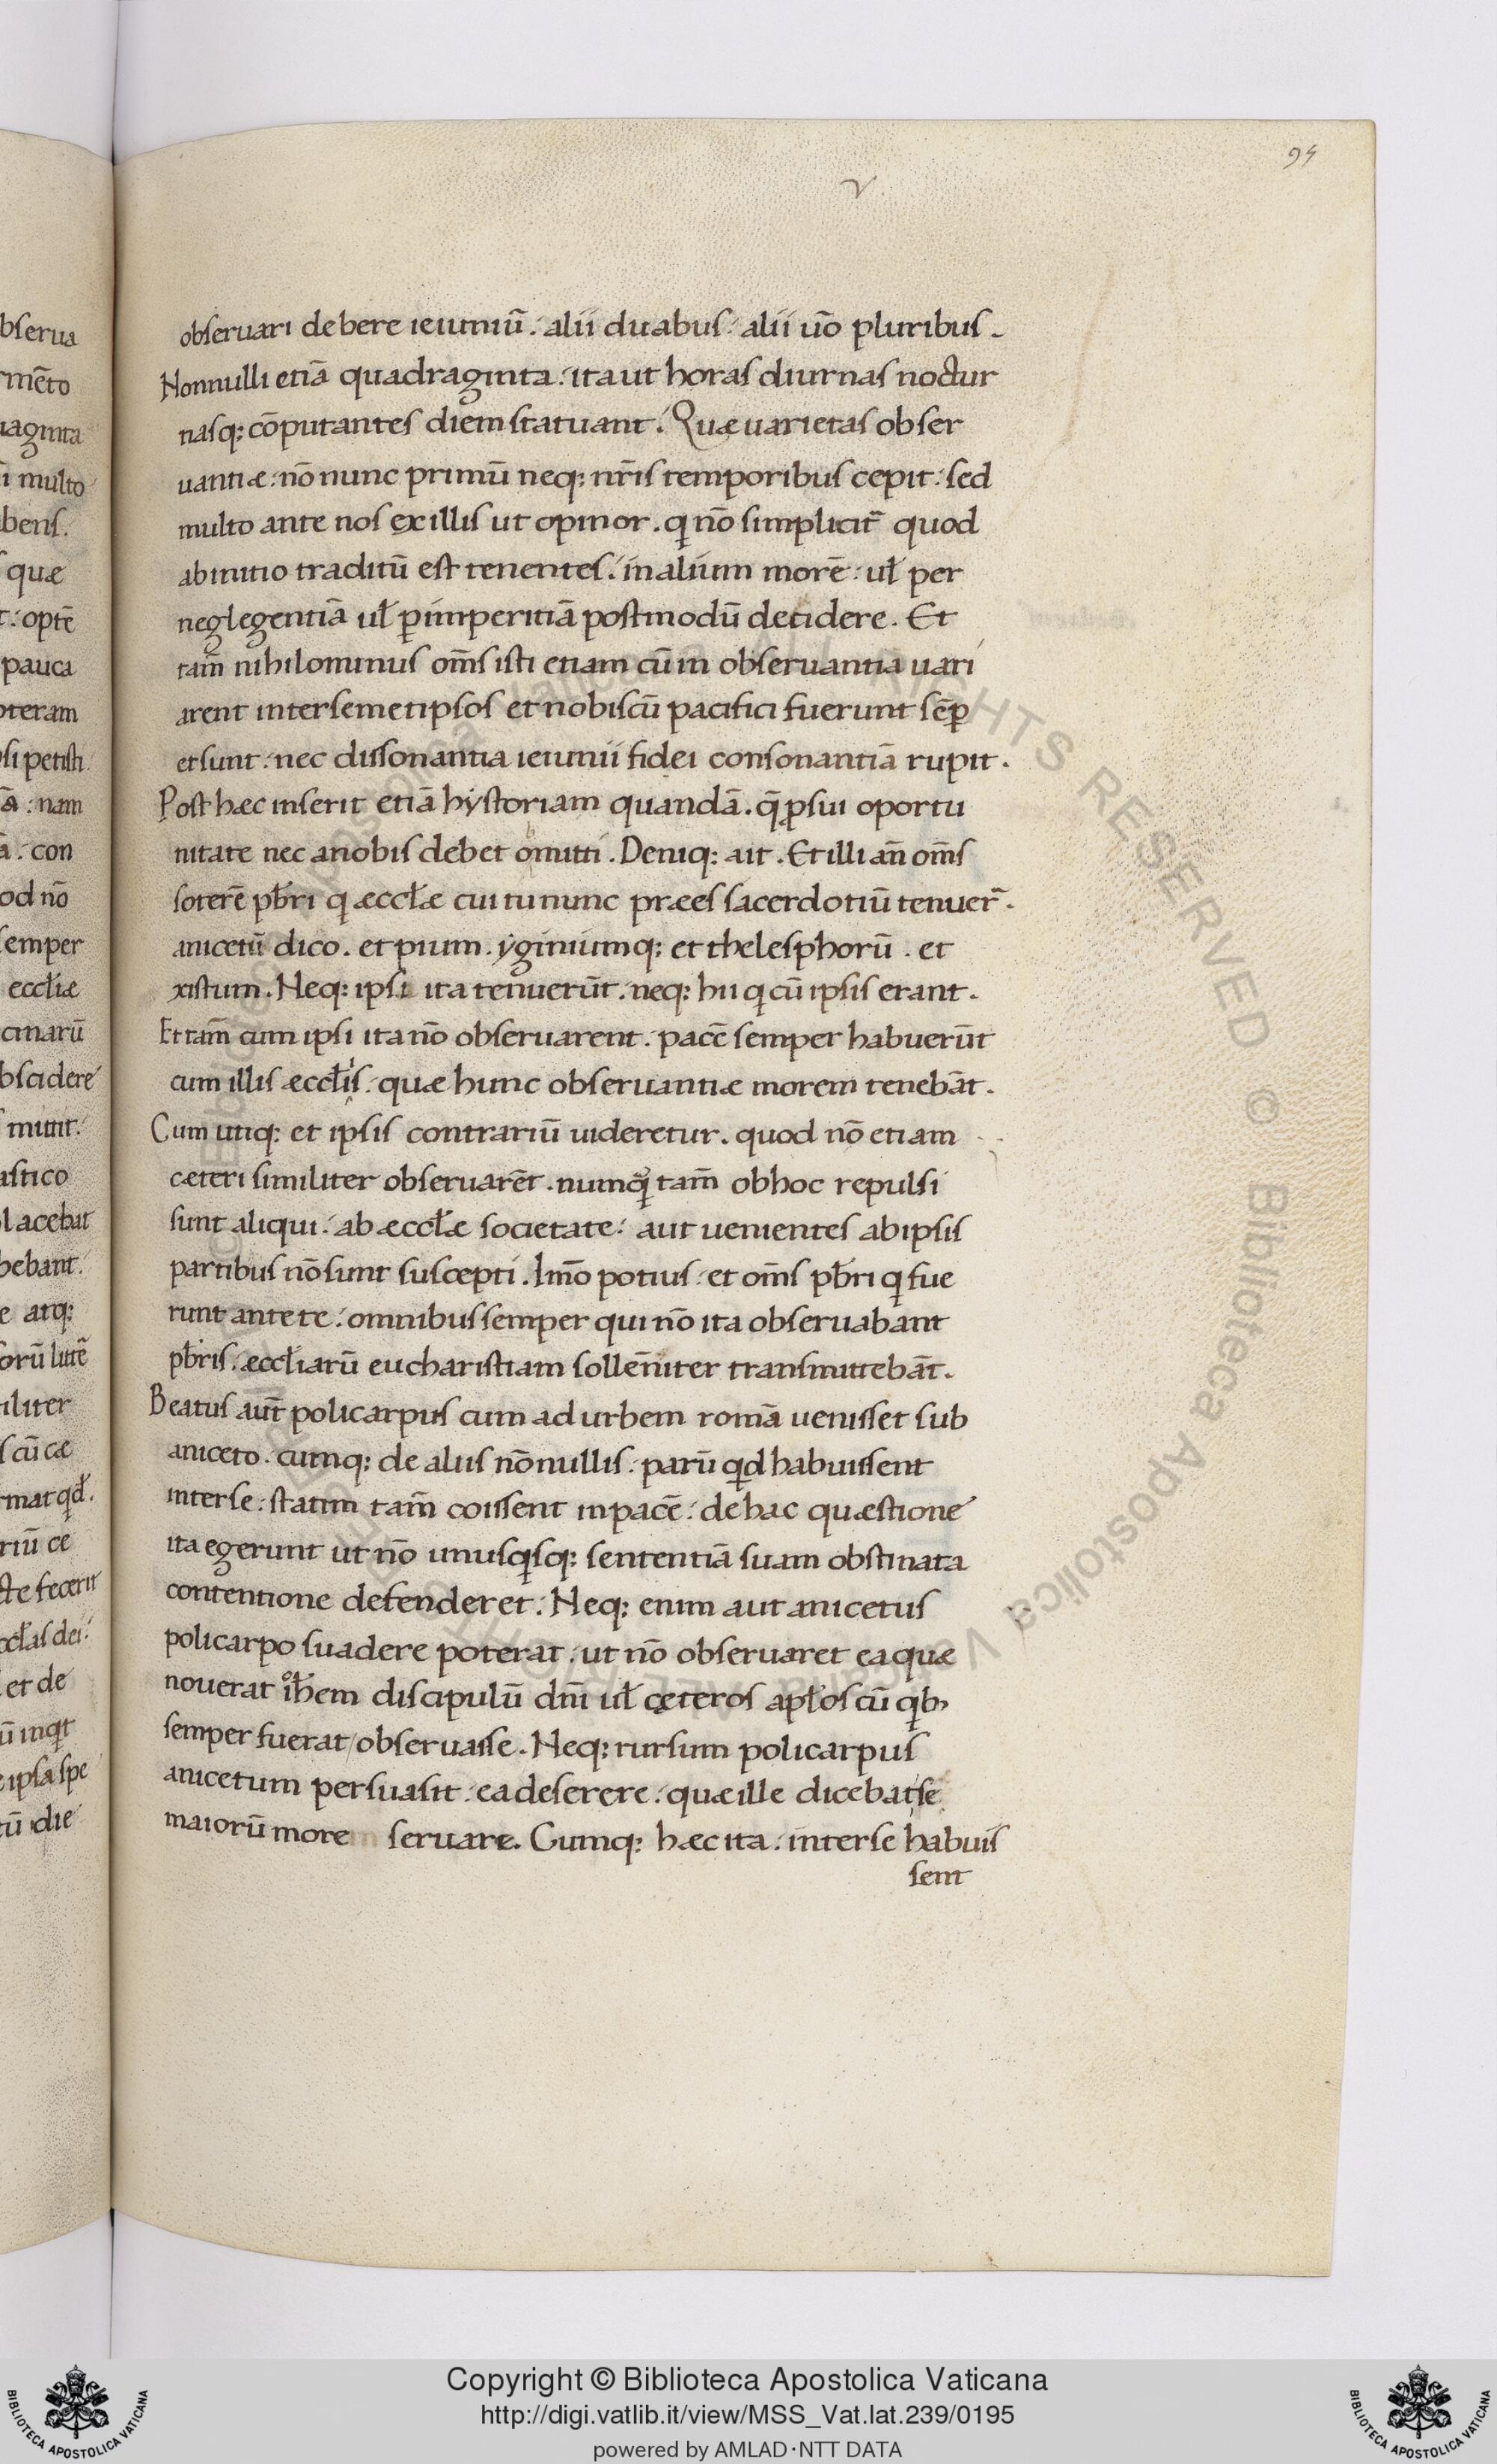 94
v
obseruari debere ieiuniū. alii duabus. alii uō pluribus.
Nonnulli etiā quadraginta. ita ut horas diurnas noctur
nasq; cōputantes diem statuant. Quæ uarietas obser
uantiæ. nō nunc primū neq; nr̄is temporibus cepit. sed
multo ante nos ex illis ut opinor. q nō simplicit̄ quod
ab initio traditū est tenentes. in alium morē. ul̄ per
neglegentiā ul̄ p̄ imperitiā postmodū decidere. Et
tam̄ nihilominus om̄s isti etiam cū in observantia uari
arent inter semetipsos et nobiscū pacifici fuerunt sēp̄
et sunt. nec dissonantia ieiunii fidei consonantiā rupit.
Post hæc inserit etiā hystoriam quandā. q̄ p̄ sui oportu
nitate nec a nobis debet omitti. Deniq; ait. Et illi an̄ om̄s
soterē pb̄ri q æccl̄æ cui tu nunc præes sacerdotiū tenuer̄.
anicetū dico. et pium. yginiumq; et thelesphorū. et
xistum. Neq; ipsi ita tenuerūt. neq; hii q cū ipsis erant.
Et tam̄ cum ipsi ita nō obseruarent. pacē semper habuerūt
cum illis æccl̄iis. quæ hunc obseruantiæ morem tenebāt.
Cum utiq; et ipsis contrariū uideretur. quod nō etiam
cæteri similiter obseruarēt. numqͣ tam̄ ob hoc repulsi
sunt aliqui. ab æccl̄æ societate. aut uenientes ab ipsis
partibus nō sunt suscepti. Im̄o potius. et om̄s pb̄ri q fue
runt ante te. omnibus semper qui nō ita obseruabant
pb̄ris. æccl̄iarū eucharistiam sollēniter transmittebāt.
Beatus aut̄ policarpus cum ad urbem romā uenisset sub
aniceto. cumq; de aliis nōnullis. parū qd habuissent
inter se. statim tam̄ coissent in pacē. de hac quæstione
ita egerunt ut nō unusqsq; sententiā suam obstinata
contentione defenderet. Neq; enim aut anicetus
policarpo suadere poterat. ut nō obseruaret ea quæ
nouerat ioh̄em discipulū dn̄i ul̄ cęteros apl̄os cū qb;
semper fuerat obseruasse. Neq; rursum policarpus
anicetum persuasit. ea deserere. quæ ille dicebat se
maiorū more seruare. Cumq; hæc ita. inter se habuis
sent
bserua
mēto
uaginta
multo
bens.
quæ
optē
pauca
oteram
si petisti
nam
con
od nō
semper
eccl̄iæ
cinarū
bscidere
mittit.
astico
lacebat
bebant.
e atq;
orū littē
iliter
s cū cæ
mat qd.
riū ce
cte fecerit
ccl̄as dei.
et de
ū inqt
ipsa spe
tū die
ALL RIGHTS RESERVED © Biblioteca Apostolica Vaticana
Copyright © Biblioteca Apostolica Vaticana
http://digi.vatlib.it/view/MSS_Vat.lat.239/0195
powered by AMLAD·NTT DATA
BIBLIOTECA APOSTOLICA VATICANA
BIBLIOTECA APOSTOLICA VATICANA